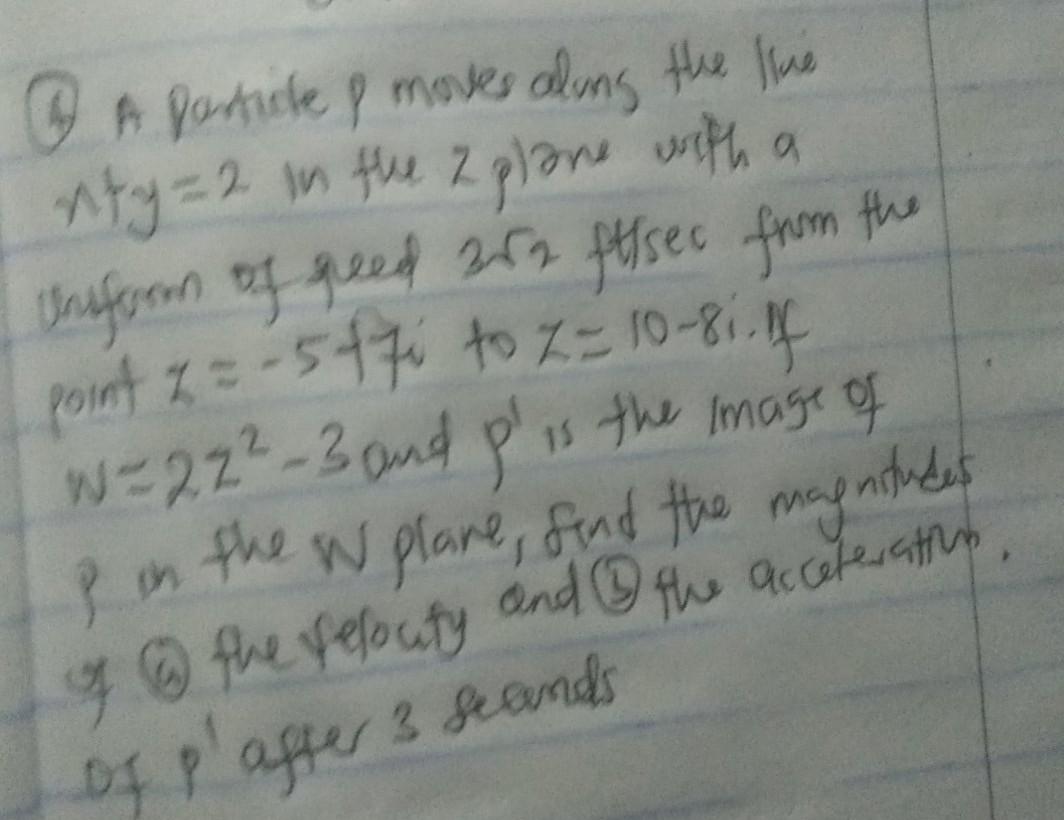 ③ A Particle P moves along the line
x+y=2 in the Z plane with a
Uniform of speed 3√2 ft/sec from the
point Z = -5+7i to Z = 10-8i. If
W=2Z²-3 and P' is the image of
P in the W plane, find the magnitudes
of ⓐ the velocity and ⓑ the acceleration.
Of P' after 3 seconds